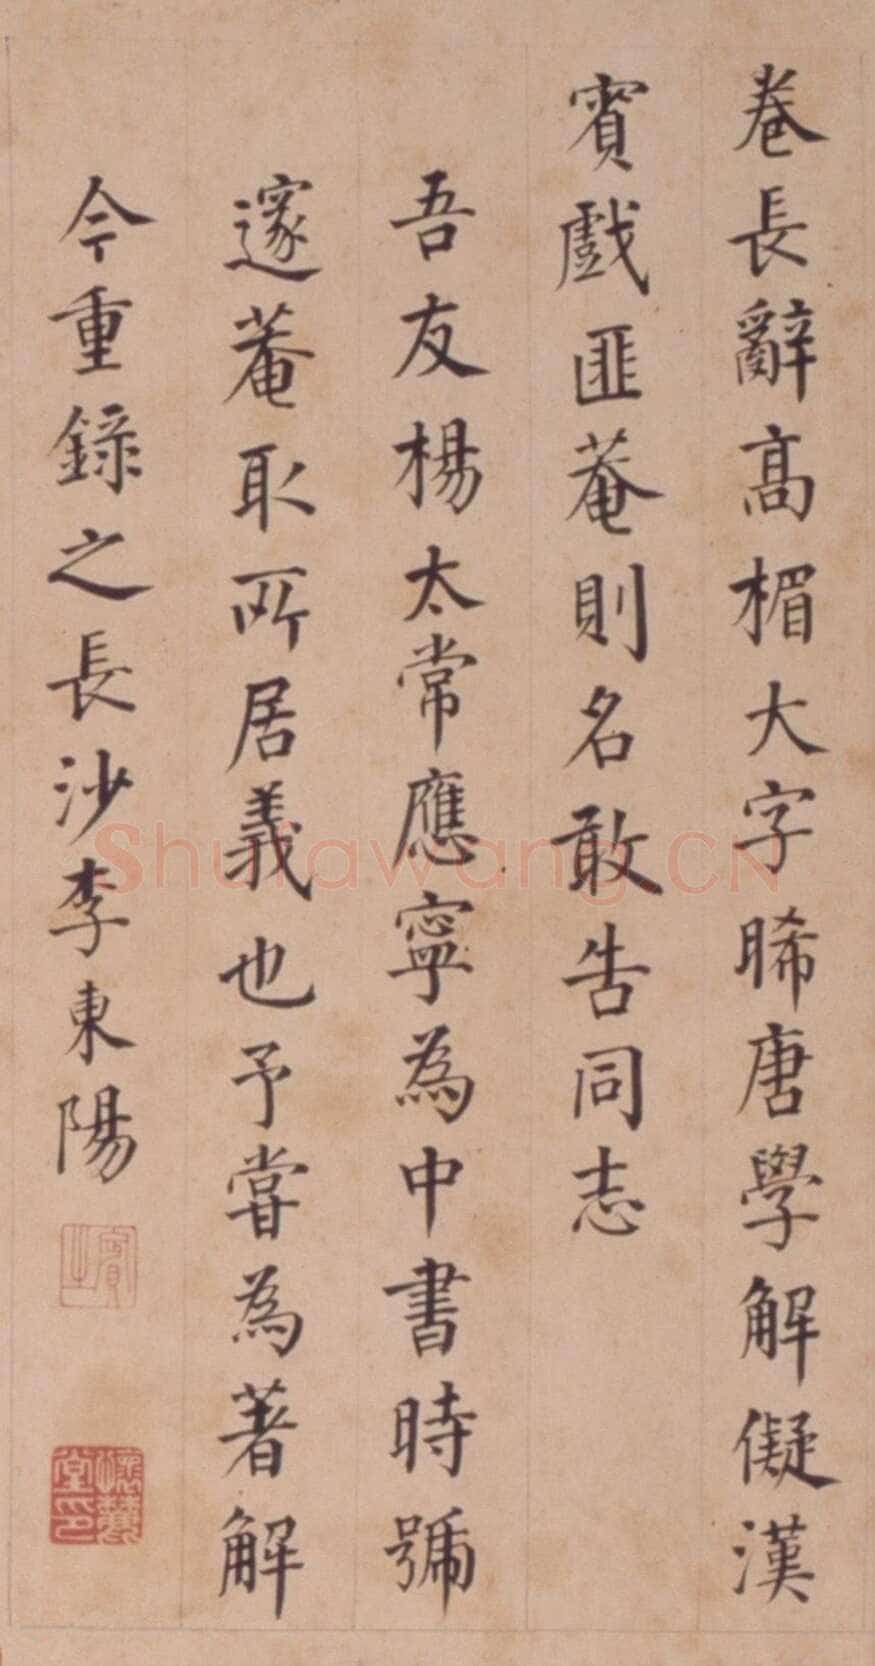 卷長辭高楣大字睎唐學解儗漢
賓戲匪菴則名敢告同志
吾友楊太常應寧為中書時號
邃菴取所居義也予嘗為著解
今重錄之長沙李東陽
賓之
懷麓堂印
Shufawang.CN